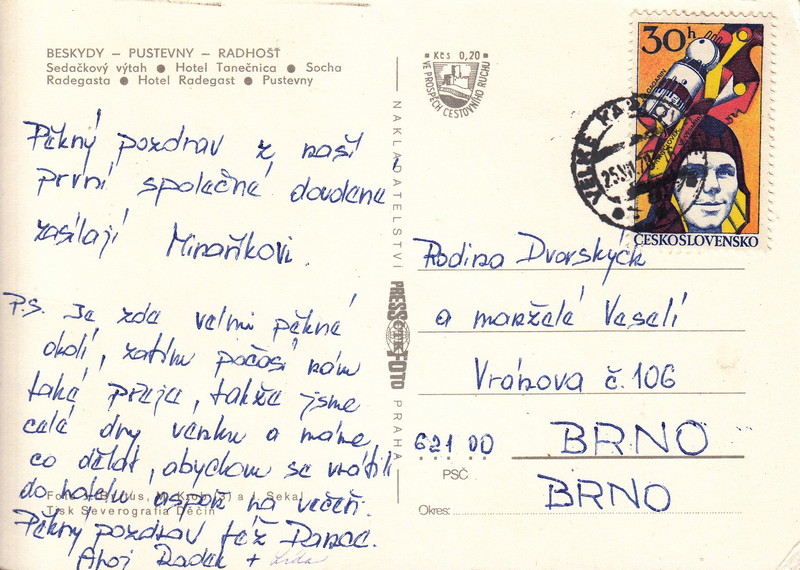 BESKYDY – PUSTEVNY – RADHOŠŤ
Sedačkový výtah ● Hotel Tanečnica ● Socha
Radegasta ● Hotel Radegast ● Pustevny
Pěkný pozdrav z naší
první společné dovolené
zasílají Minaříkovi.
P.S. Je zde velmi pěkné
okolí, zatím počasí nám
také přeje, takže jsme
celé dny venku a máme
co dělat, abychom se vrátili
do hotelu aspoň na večeři.
Pěkný pozdrav též Dance.
Ahoj Radek +
Tisk Severografia Děčín
NAKLADATELSTVÍ
PRESSFOTO
ČTK
PRAHA
Kčs 0,20
VE PROSPĚCH CESTOVNÍHO RUCHU
30h
GAGARIN
ČESKOSLOVENSKO
Rodina Dvorských
a manželé Veselí
Vránova č. 106
621 00 BRNO
PSČ
BRNO
Okres: